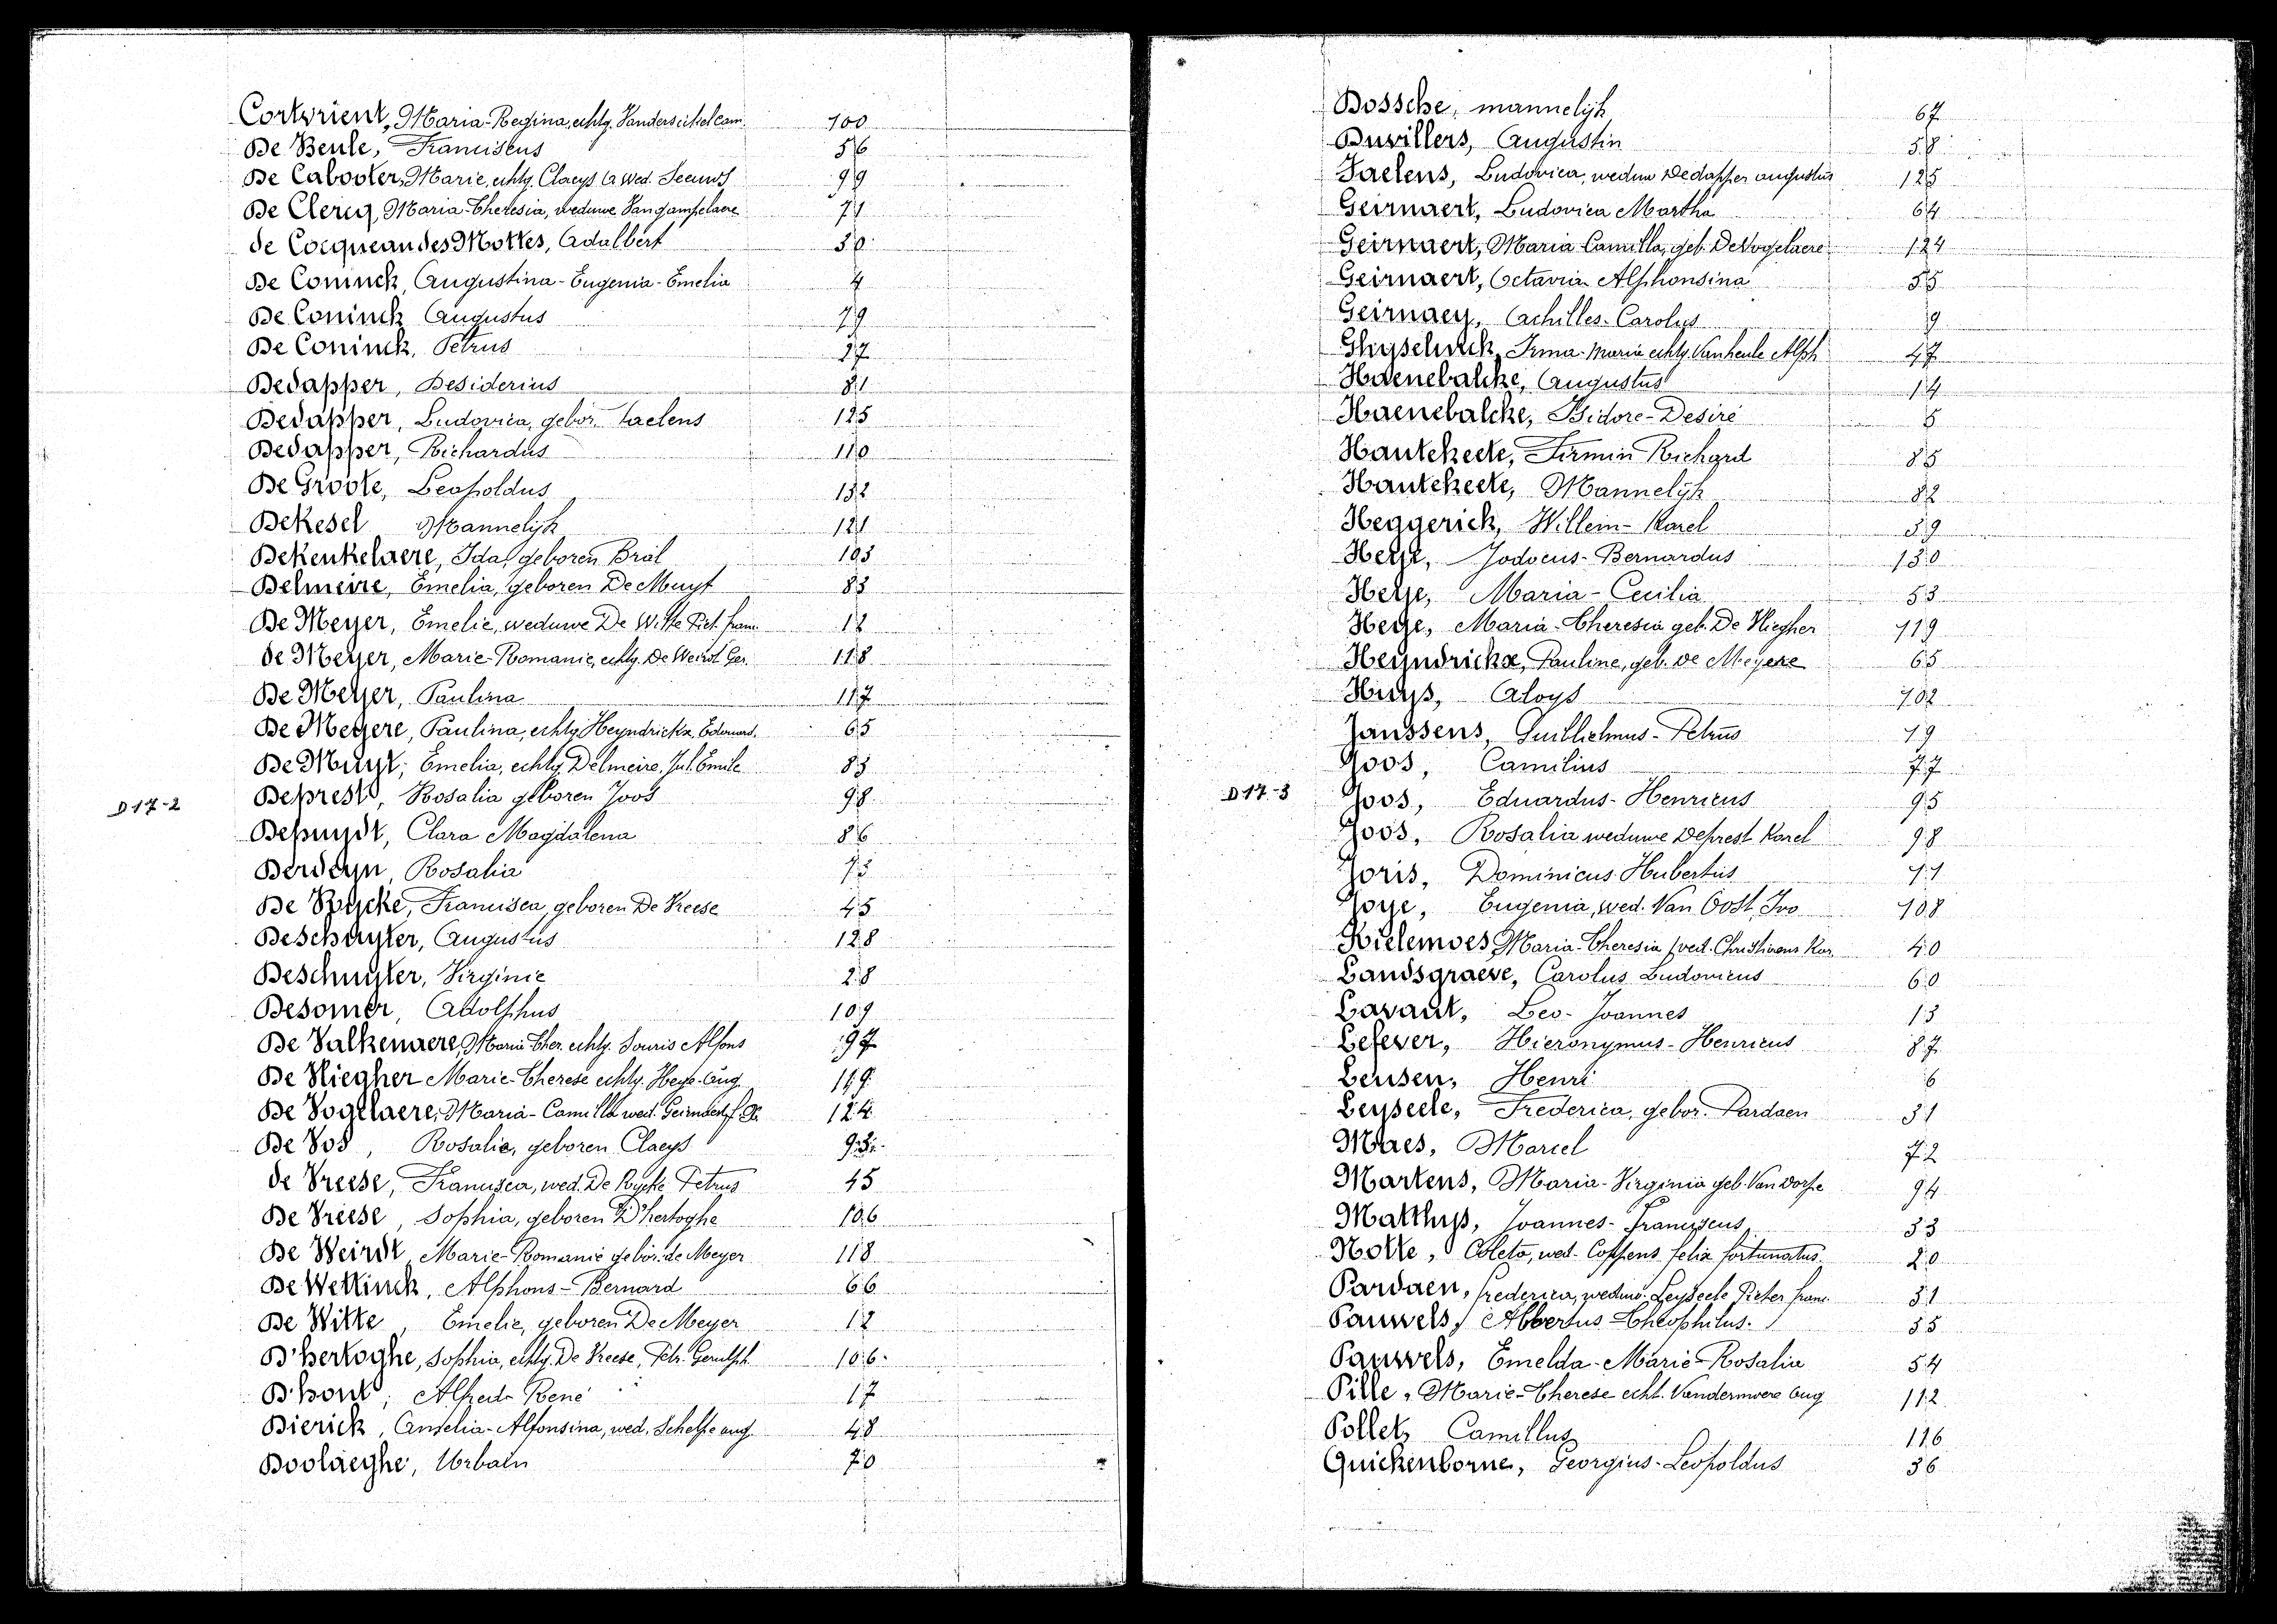 Cortvrient, Maria-Regina, echtg. Vandersickel cam. 100
De Beule, Franciscus 56
De Cabooter, Marie, echtg. Claeys (a wed. Seeuws 99
De Clercq, Maria-Theresia, weduwe Vangampelaere 71
de Cocqueau des Mottes, Adalbert 30
De Coninck, Augustina-Eugenia-Emelia 4
De Coninck Augustus 79
De Coninck, Petrus 27
Dedapper, Desiderius 81
Dedapper, Ludovica, gebor. Faelens 125
Dedapper, Richardus 110
De Groote, Leopoldus 132
DeKesel Mannelijk 121
DeKeukelaere, Ida, geboren Bral 103
Delmeire, Emelia, geboren De Muyt 83
De Meyer, Emelie, weduwe De Witte Piet. fran. 12
de Meyer, Marie-Romanie, echtg. De Weirdt Ger. 118
De Meyer, Paulina 117
De Meyere, Paulina, echtg. Heyndrickx, Edouard. 65
De Muyt, Emelia, echtg. Delmeire, Jul. Emile 83
D 17-2 Deprest, Rosalia geboren Joos 98
Depuydt, Clara Magdalena 86
Derdeyn, Rosalia 75
De Rycke, Francisca, geboren De Vreese 45
Deschuyter, Augustus 128
Deschuyter, Virginie 28
Desomer, Adolphus 109
De Valkenaere, Maria Ther. echtg. Souris Alfons 97
De Vliegher Marie-Therese echtg. Heye-Aug. 119
De Vogelaere, Maria-Camilla wed. Geirnaert 124
De Vos, Rosalie, geboren Claeys 93
de Vreese, Francisca, wed. De Rycke Petrus 45
De Vreese, Sophia, geboren D'hertoghe 106
De Weirdt, Marie-Romanie gebor. de Meyer 118
De Wettinck, Alphons-Bernard 66
De Witte, Emelie, geboren De Meyer 12
D'hertoghe, Sophia, echtg. De Vreese, Petr. Gerulph. 106
D'hont, Alfred-René 17
Dierick, Amelia-Alfonsina, wed. Schelpe aug. 48
Doolaeghe, Urbain 70
Dossche, mannelijk 67
Duvillers, Augustin 58
Faelens, Ludovica, weduw Dedapper augustus 125
Geirnaert, Ludovica Martha 64
Geirnaert, Maria Camilla, geb. DeVogelaere 124
Geirnaert, Octavia Alphonsina 55
Geirnaey, Achilles-Carolus 9
Ghyselinck, Irma-Maria echtg. Vanheule Alph. 47
Haenebalcke, Augustus 14
Haenebalcke, Isidore-Desiré 5
Hautekeete, Firmin Richard 85
Hautekeete, Mannelijk 82
Heggerick, Willem-Karel 39
Heye, Jodocus-Bernardus 130
Heye, Maria-Cecilia 53
Heye, Maria-Theresia geb. De Vliegher 119
Heyndrickx, Pauline, geb. de Meyere 65
Huys, Aloys 102
Janssens, Guillielmus-Petrus 19
Joos, Camilius 77
D 17-3 Joos, Eduardus-Henricus 95
Joos, Rosalia weduwe Deprest Karel 98
Joris, Dominicus Hubertus 11
Joye, Eugenia, wed. Van Oost, Ivo 108
Kielemoes, Maria-Theresia (wed. Christiaens Kar. 40
Landsgraeve, Carolus Ludovicus 60
Lavaut, Leo-Joannes 13
Lefever, Hieronymus-Henricus 87
Leusen, Henri 6
Leyseele, Frederica, gebor. Pardaen 31
Maes, Marcel 72
Martens, Maria-Virginia geb. Van Dorpe 94
Matthys, Joannes-Franciscus 33
Notte, Coleta, wed. Coppens felix fortunatus 20
Pardaen, frederica, weduw. Leyseele Pieter franc. 31
Pauwels, Albertus Theophilus. 35
Pauwels, Emelda-Marie-Rosalia 54
Pille, Marie-Therese echt. Vandermoere Aug 112
Pollet, Camillus 116
Quickenborne, Georgius-Leopoldus 36